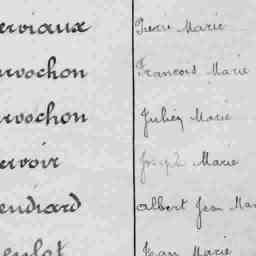 erviaux Pierre Marie
ervochon Francois Marie
ervochon Julien Marie
ervoir Joseph Marie
endiard Albert Jean Mar
Jean Marie